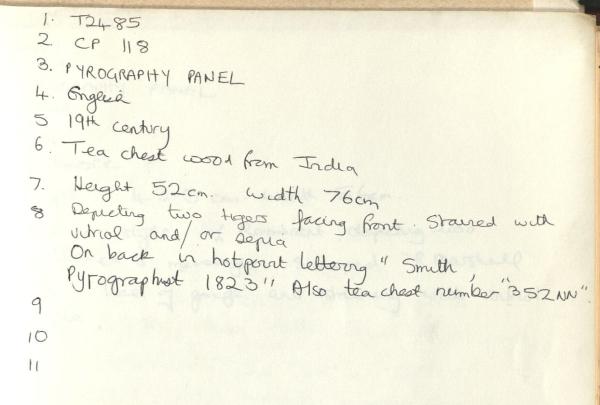 1. T2485
2 CP 118
3. PYROGRAPHY PANEL
4. English
5 19th century
6. Tea chest wood from India
7. Height 52cm. Width 76cm
8 Depicting two tigers facing front. Stained with
vitriol and/or Sepia
On back in hotpoint lettering "Smith,
Pyrographist 1823" Also tea chest number "352NN".
9
10
11